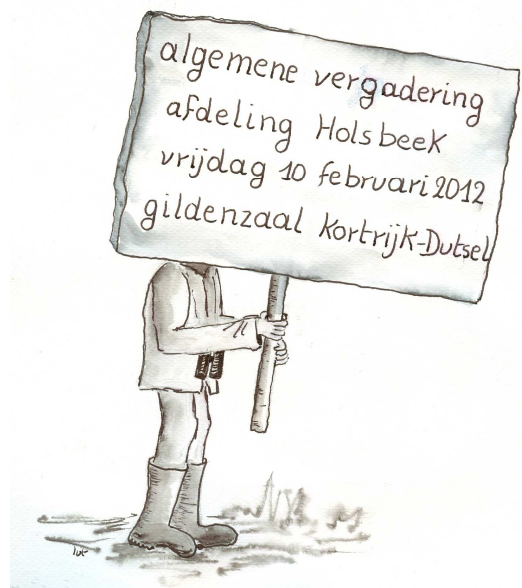 algemene vergadering
afdeling Holsbeek
vrijdag 10 februari 2012
gildenzaal Kortrijk-Dutsel